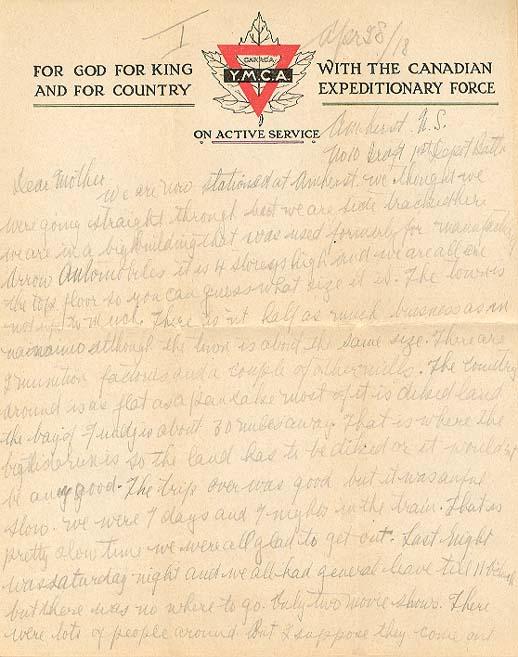 I
Apr 28/18
CANADA
Y.M.C.A.
FOR GOD FOR KING
AND FOR COUNTRY
WITH THE CANADIAN
EXPEDITIONARY FORCE
ON ACTIVE SERVICE
Amherst N.S.
No 10 Draft 1st Depot Battn
Dear Mother
We are now stationed at Amherst. we thought we
were going straight through but we are side tracked here
we are in a big building that was used formerly for manufacturing
Arrow Automobiles it is 4 storeys high and we are all on
the top floor so you can guess what size it is. The town is
not up to much. There is'nt half as much business as in
nanaimo although the town is about the same size. There are
2 munition factories and a couple of other mills. The country
around is as flat as a pancake most of it is diked land
the bay of Fundy is about 30 miles away. That is where the
big tide runs so the land has to be diked or it would'nt
be any good. The trip over was good but it was awful
slow. we were 7 days and 7 nights in the train. That is
pretty slow time we were all glad to get out. Last night
was saturday night and we all had general leave till 11
but there was no where to go. Only two movie shows. There
were lots of people around But I suppose they come out